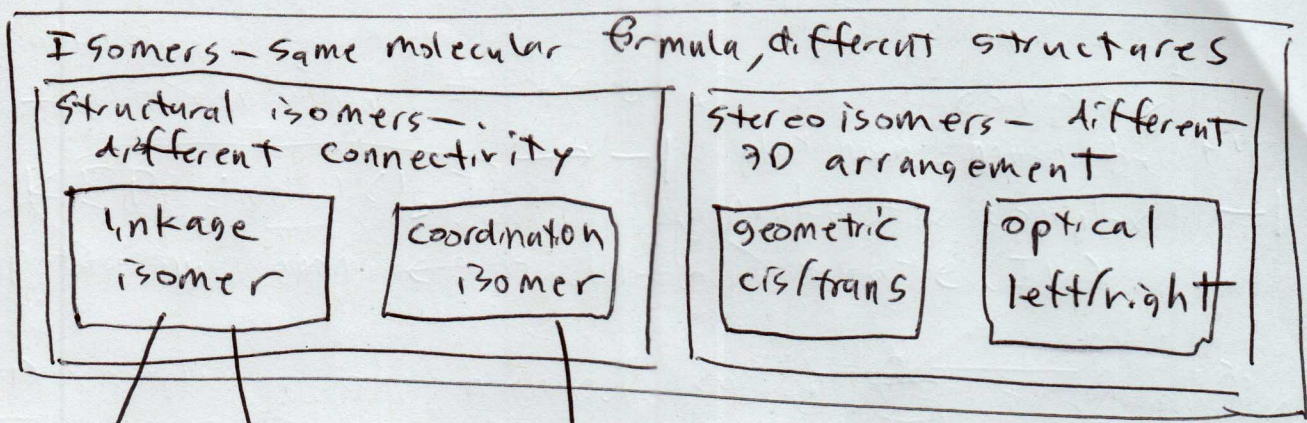 Isomers - same molecular formula, different structures
structural isomers -
different connectivity
linkage
isomer
coordination
isomer
stereoisomers - different
3D arrangement
geometric
cis/trans
optical
left/right